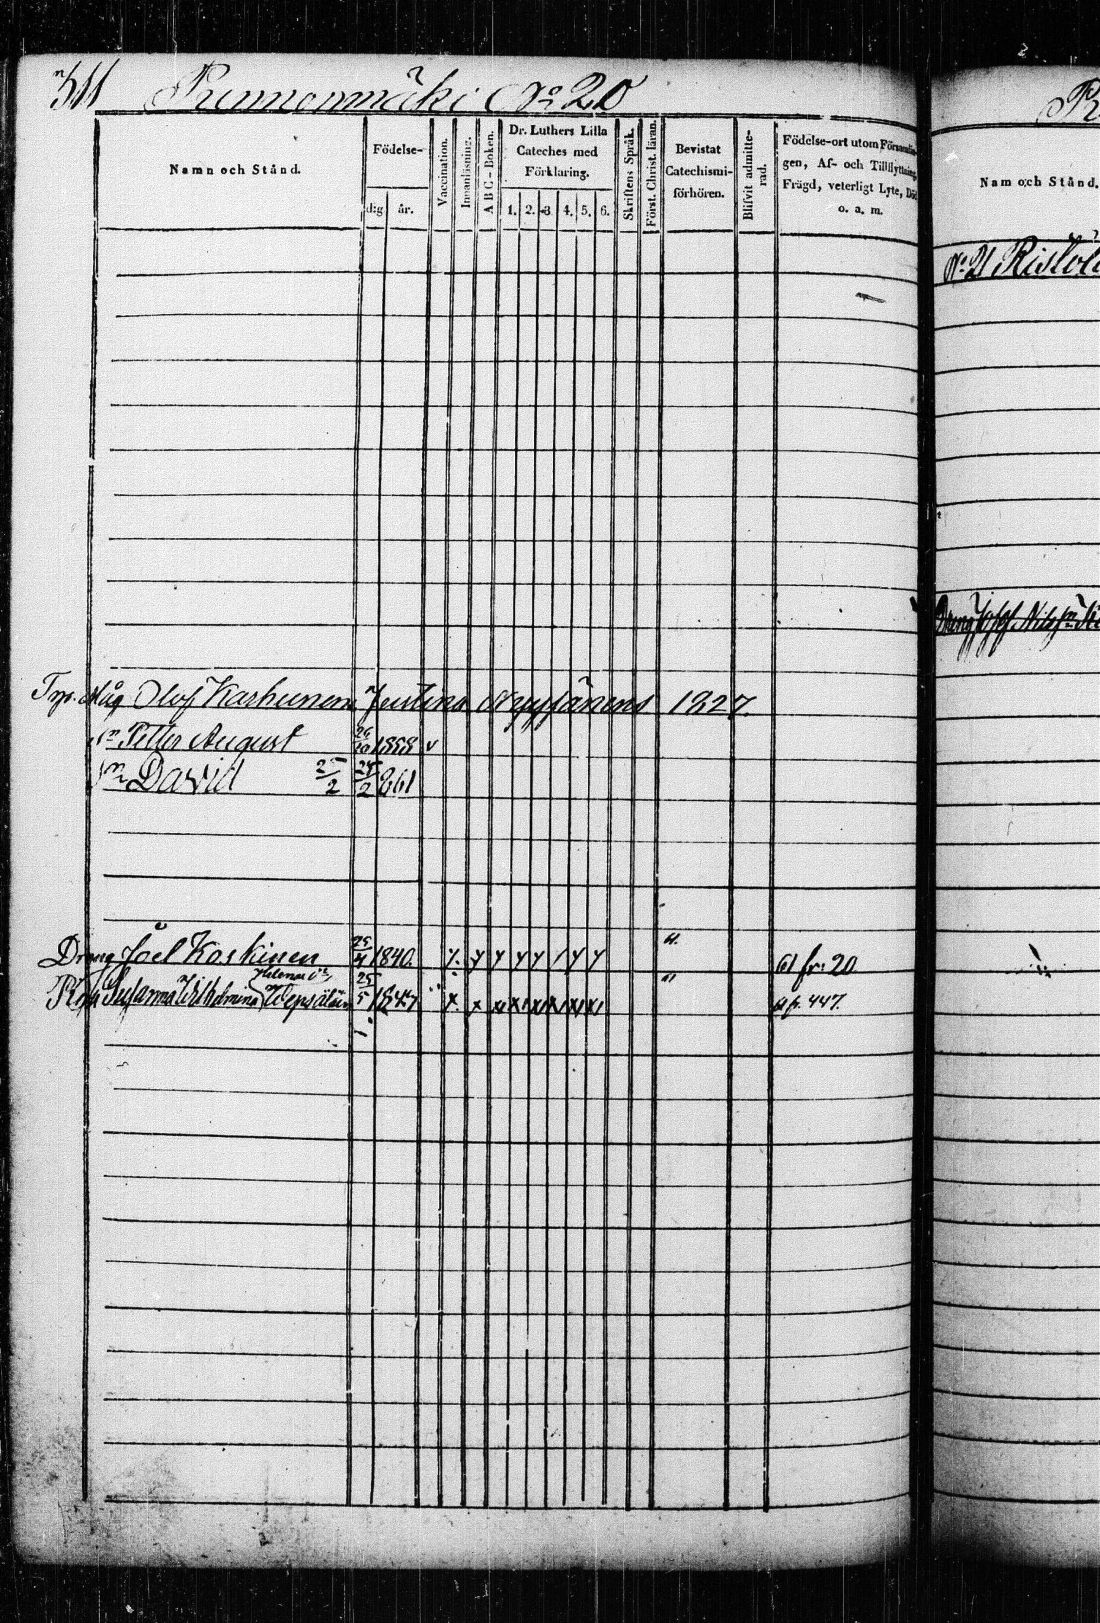 511 Runnonmäki No 20
Namn och Stånd.
Födelse-
dig
år.
Vaccination.
Innanläsning.
A B C - Boken.
Dr. Luthers Lilla
Cateches med
Förklaring.
1. 2. 3. 4. 5. 6.
Skriftens Språk.
Först. Christ. läran.
Bevistat
Catechismi-
förhören.
Blifvit admitte-
rad.
Födelse-ort utom Församlin-
gen, Af- och Tillflyttning,
Frägd, veterligt Lyte, Död
o. a. m.
Olof Karhunen Justina 1827
Sn Petter August 1858 v
Sn David 25/2 25/2 861
Dräng Joel Koskinen 25/4 1840. 61 fr. 20
Susanna Wilhelmina Helena Wepsäläin 25/5 1847 61 fr. 447.
Namn och Stånd.
No 21
Dräng Josef Nilsson